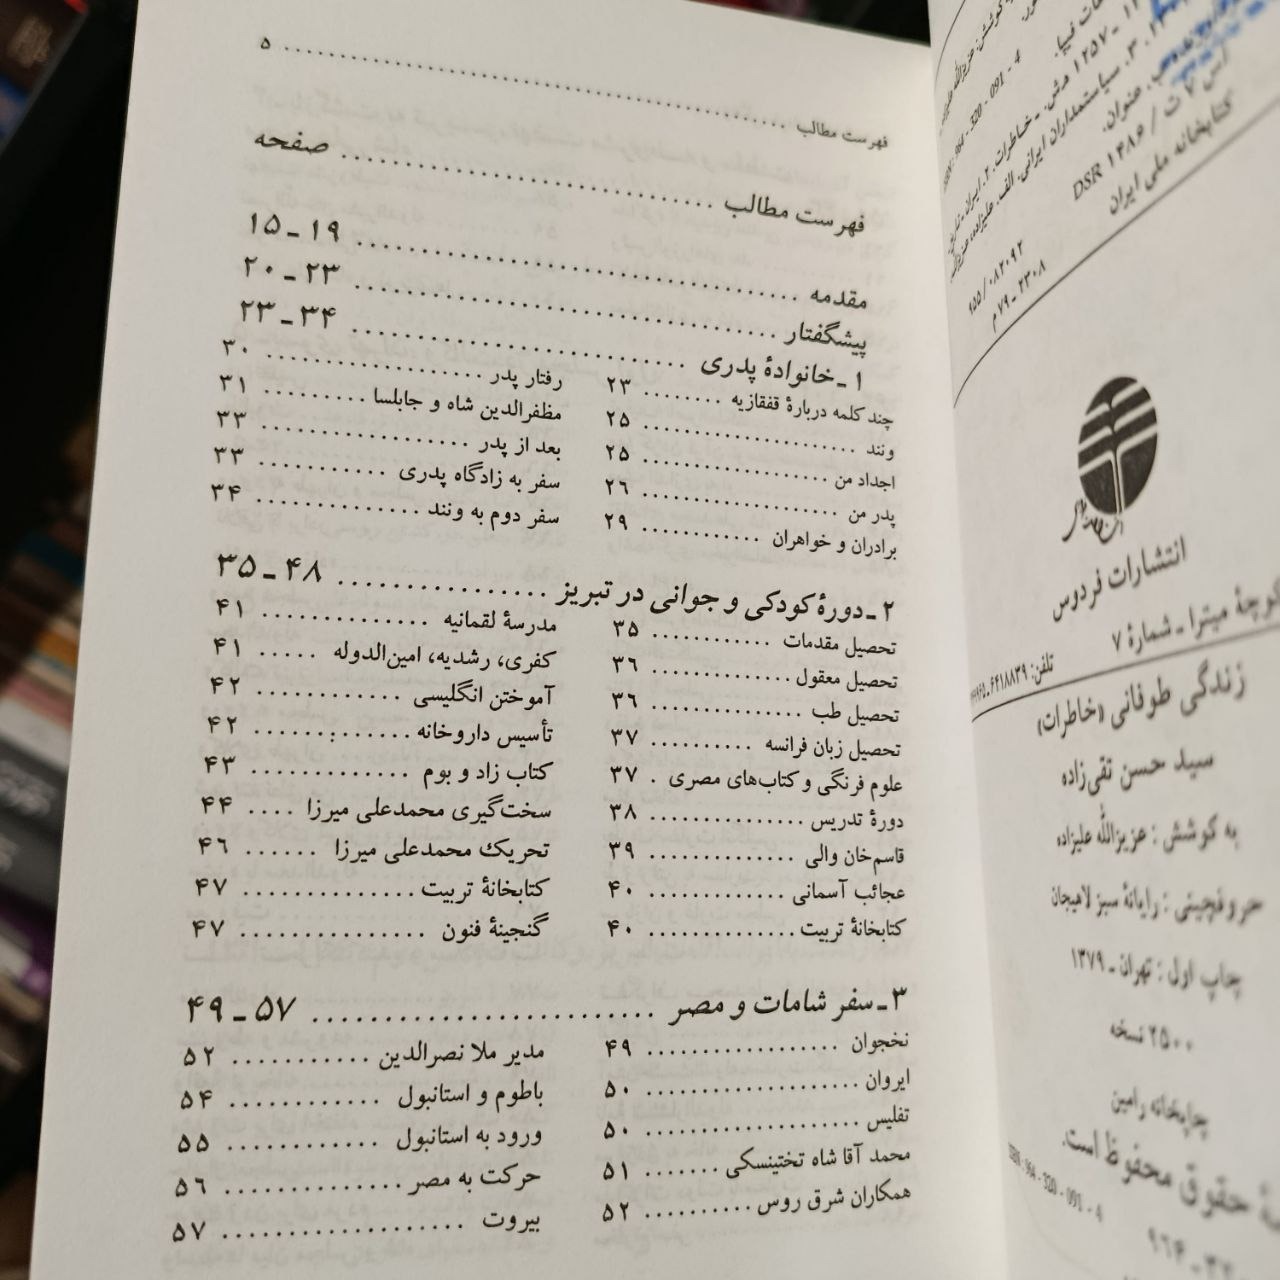 فهرست مطالب ........ ۵
فهرست مطالب ........ صفحه
مقدمه ........ ۱۹ ـ ۱۵
پیشگفتار ........ ۲۳ ـ ۲۰
۱ ـ خانوادهٔ پدری ........ ۳۴ ـ ۲۳
چند کلمه دربارهٔ قفقازیه ........ ۲۳
ونند ........ ۲۵
اجداد من ........ ۲۵
پدر من ........ ۲۶
برادران و خواهران ........ ۲۹
رفتار پدر ........ ۳۰
مظفرالدین شاه و جابلسا ........ ۳۱
بعد از پدر ........ ۳۳
سفر به زادگاه پدری ........ ۳۳
سفر دوم به ونند ........ ۳۴
۲ ـ دورهٔ کودکی و جوانی در تبریز ........ ۴۸ ـ ۳۵
تحصیل مقدمات ........ ۳۵
تحصیل معقول ........ ۳۶
تحصیل طب ........ ۳۶
تحصیل زبان فرانسه ........ ۳۷
علوم فرنگی و کتاب‌های مصری . ۳۷
دورهٔ تدریس ........ ۳۸
قاسم‌خان والی ........ ۳۹
عجائب آسمانی ........ ۴۰
کتابخانهٔ تربیت ........ ۴۰
مدرسهٔ لقمانیه ........ ۴۱
کفری، رشدیه، امین‌الدوله ..... ۴۱
آموختن انگلیسی ........ ۴۲
تأسیس داروخانه ........ ۴۲
کتاب زاد و بوم ........ ۴۳
سخت‌گیری محمدعلی میرزا .... ۴۴
تحریک محمدعلی میرزا ...... ۴۶
کتابخانهٔ تربیت ........ ۴۷
گنجینهٔ فنون ........ ۴۷
۳ ـ سفر شامات و مصر ........ ۵۷ ـ ۴۹
نخجوان ........ ۴۹
ایروان ........ ۵۰
تفلیس ........ ۵۰
محمد آقا شاه تختینسکی ....... ۵۱
همکاران شرق روس ........ ۵۲
مدیر ملا نصرالدین ........ ۵۲
باطوم و استانبول ........ ۵۴
ورود به استانبول ........ ۵۵
حرکت به مصر ........ ۵۶
بیروت ........ ۵۷
فیپا.
۳. سیاستمداران ایرانی. الف. علیزاده، عزیزالله
عنوان.
DSR ۱۴۸۶ /
کتابخانه ملی ایران
۹۵۵ / ۰۸۲۰۹۲
۷۹ ـ ۲۳۰۸ م
انتشارات فردوس
کوچهٔ میترا ـ شمارهٔ ۷
تلفن: ۶۴۱۸۸۳۹
زندگی طوفانی «خاطرات»
سید حسن تقی‌زاده
به کوشش : عزیزالله علیزاده
حروفچینی : رایانهٔ سبز لاهیجان
چاپ اول : تهران ـ ۱۳۷۹
۲۵۰۰ نسخه
چاپخانه رامین
حقوق محفوظ است.
ISBN : 964 - 320 - 091 - 4